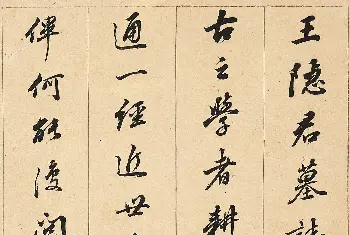 王隱君墓誌
古之學者耕
通一經近世
倖何能復